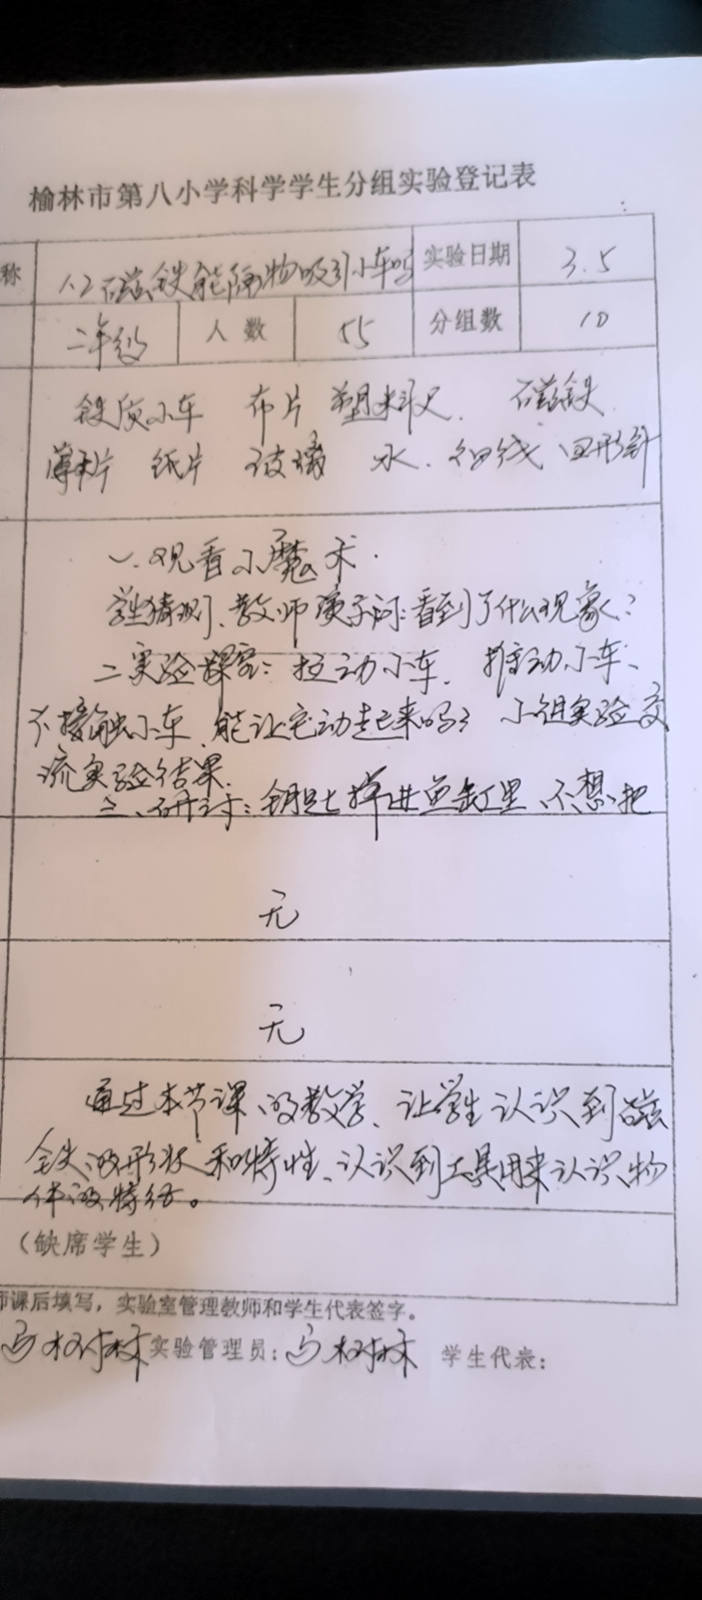 榆林市第八小学科学学生分组实验登记表
称 1.2磁铁能隔物吸引小车吗 实验日期 3.5
二年级 人数 55 分组数 10
铁质小车 布片 塑料尺. 磁铁
薄木片 纸片 玻璃 水. 细线 回形针
一.观看小魔术.
学生猜测、教师演示问:看到了什么现象?
二实验探究:拉动小车. 推动小车、
不接触小车、能让它动起来吗? 小组实验交
流实验结果.
三、研讨:钥匙掉进鱼缸里、不想把
无
无
通过本节课的教学、让学生认识到磁
铁的形状和特性、认识到工具用来认识物
体的特征。
(缺席学生)
师课后填写,实验室管理教师和学生代表签字。
马树林 实验管理员:马树林 学生代表: